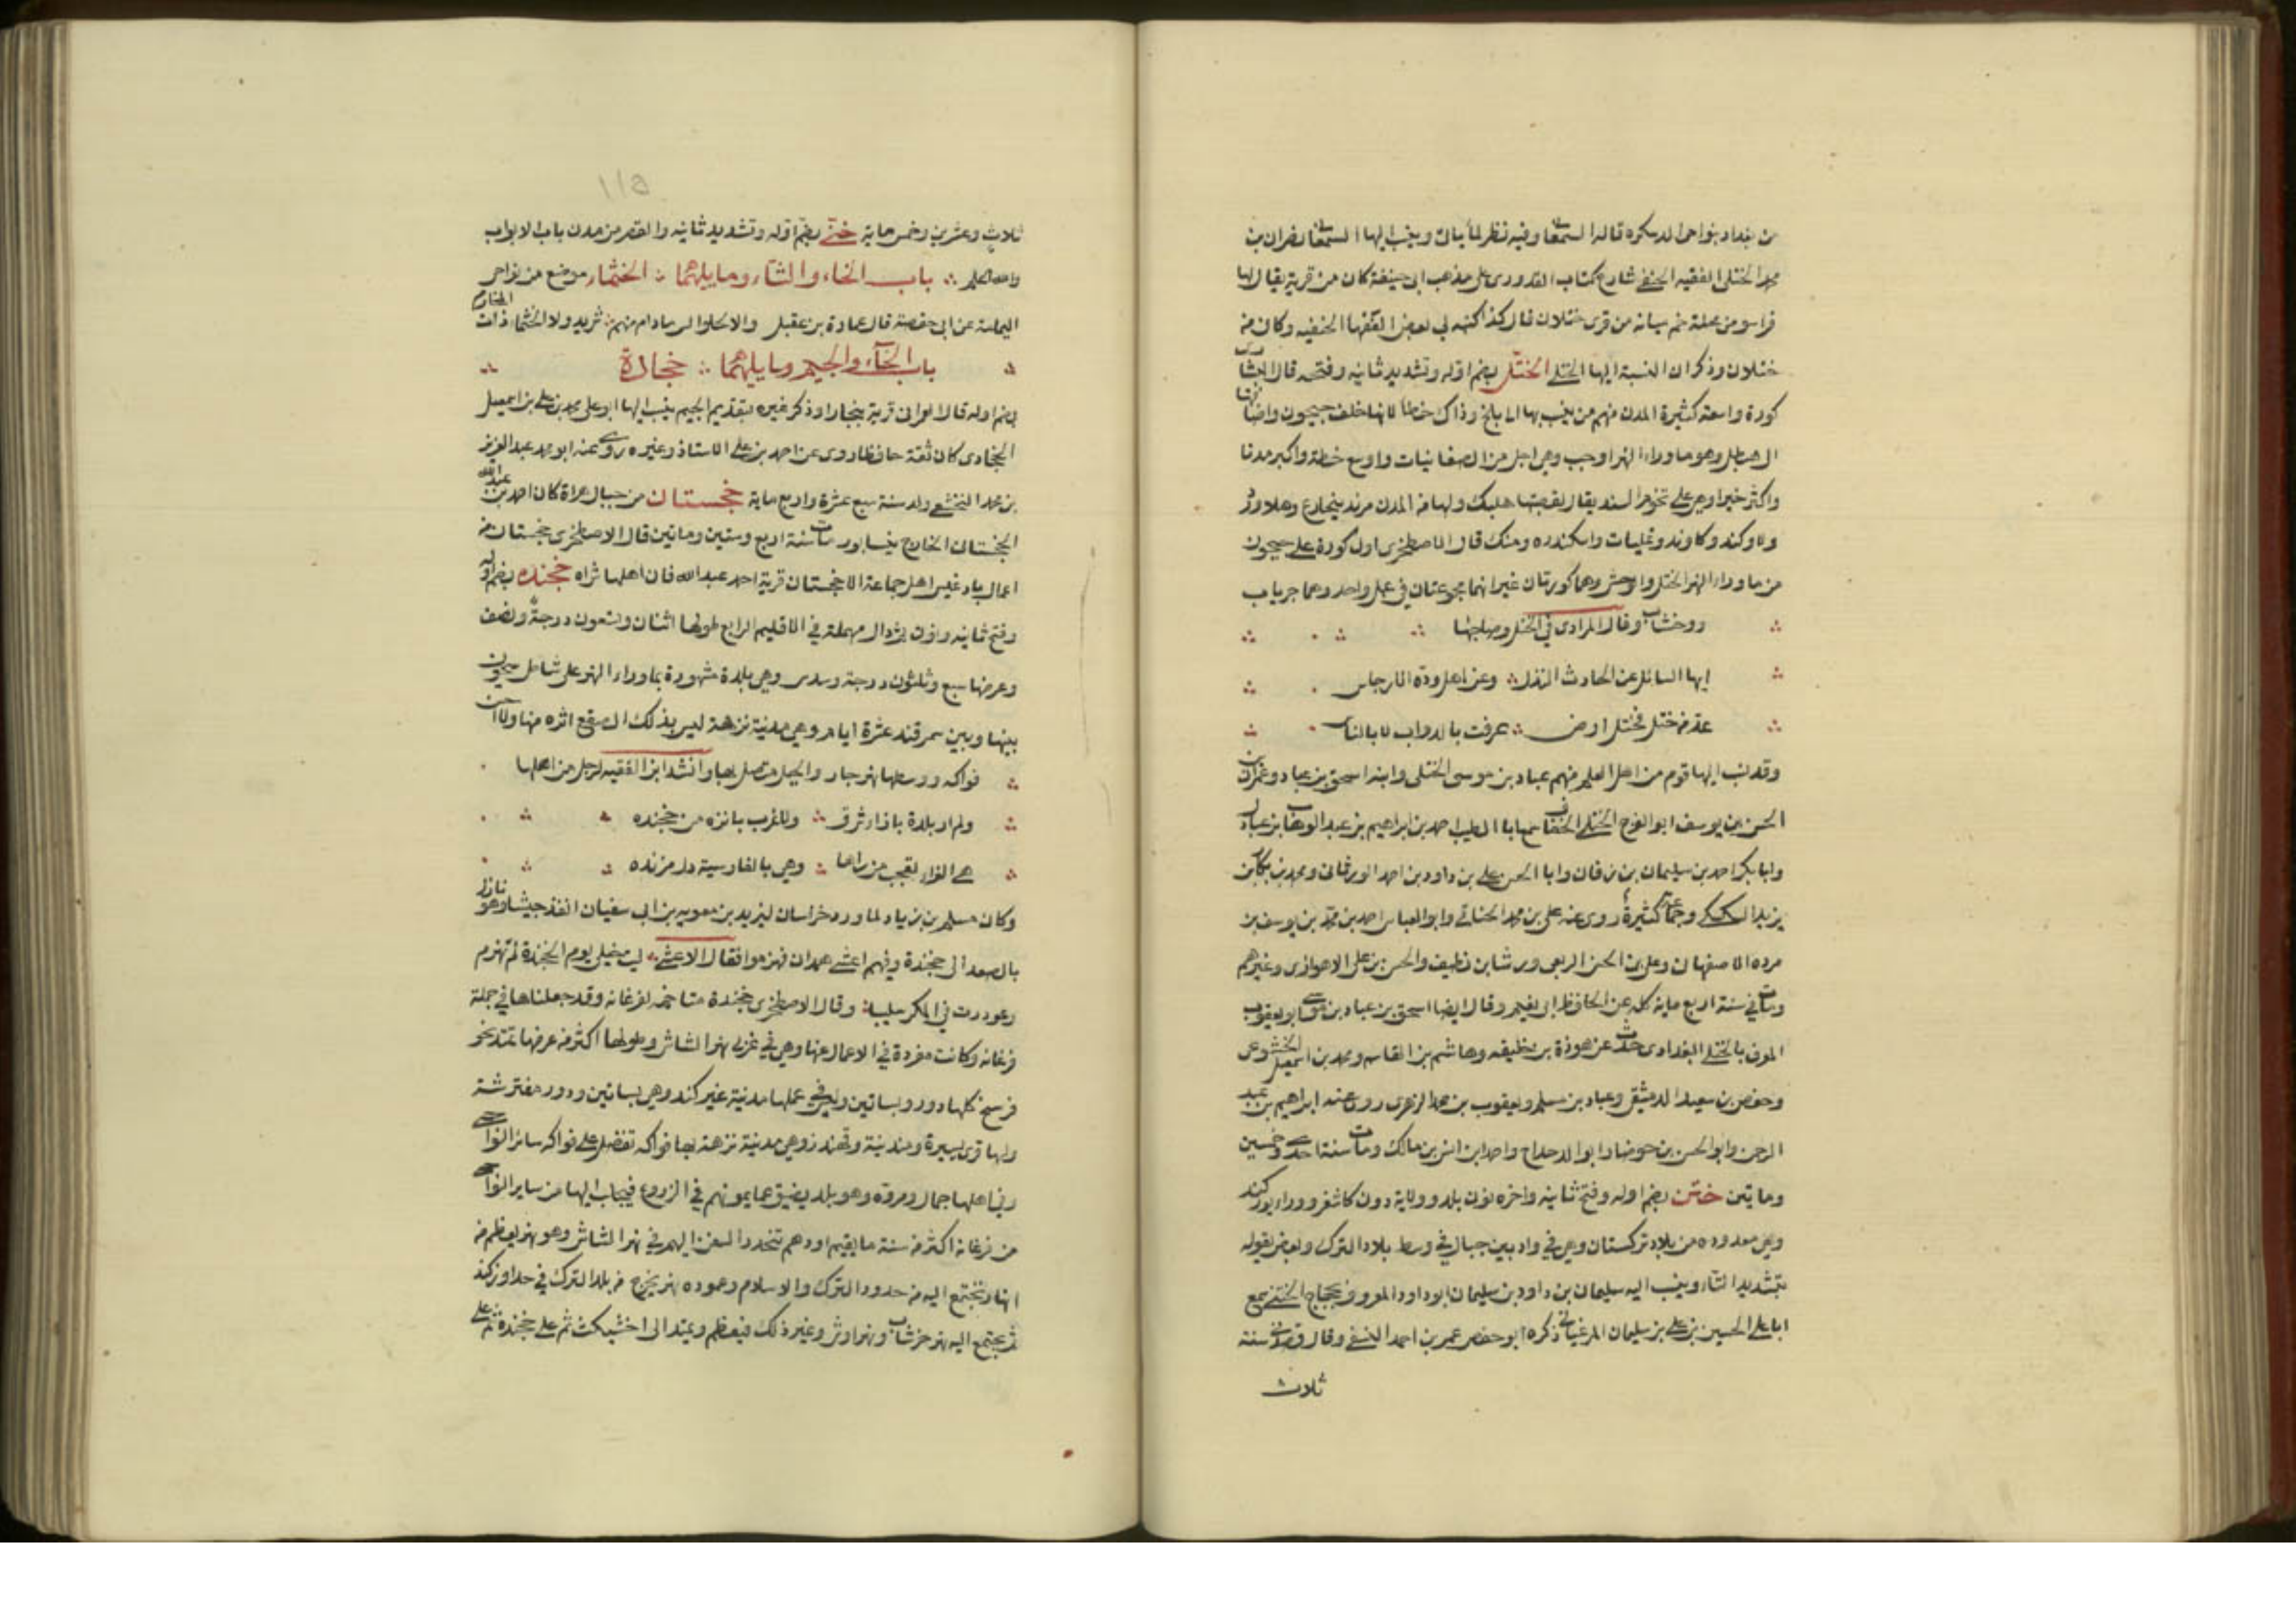 من بغداد بنواحى الدسكره قاله السمعانى وفيه نظر لما ياتى وينسب اليها السمعانى نصر بن
محمد الختلى الفقيه الحنفى شارح كتاب القدورى على مذهب ابى حنيفة كان من قرية يقال لها
قراسو من محلة من قرى ختلان قال كذا كتبه لى بعض الفقها الحنفيه وكان من
ختلان وذكر ان النسبة اليها الختلى الختل بضم اوله وتشديد ثانيه وفتحه قال البشارى
كورة واسعة كثيرة المدن منهم من ينسبها الى بلخ وذاك خطأ لانها خلف جيحون واضافتها
الى هيطل وهو ما وراء النهر اوجب وهى اجل من الصغانيات واوسع خطة واكبر مدنا
واكثر خيرا وهى على تخوم السند يقال لقصبتها هلبك ولها من المدن مرند هلاورد
ولاوكند وكاوند وتمليات واسكندره ومنك قال الاصطخرى اول كورة على جيحون
من ما وراء النهر الختل والوخش وهما كورتان غير انهما مجموعتان فى عمل واحد وهما بين جرياب
ووخشاب وقال المرادى فى الختل وصاحبها
ايها السائل عن الحادث النذل وعن اهل وده الارجاس
عد من ختل فختل ارض عرفت بالدواب لا بالناس
وقد نسب اليها قوم من اهل العلم منهم عباد بن موسى الختلى وابنه اسحق بن عباد وعمران
الحسن بن يوسف ابو الفرج الختلى سمع ابا الطيب احمد بن ابراهيم بن عبد الوهاب بن عبادل
وابا بكر احمد بن سليمان بن زبان وابا الحسن على بن داود بن احمد الورثانى ومحمد بن بكار بن
يزيد السكسكى وجماعة كثيرة روى عنه على بن محمد الحنائى وابو العباس احمد بن محمد بن يوسف بن
مرده الاصفهانى وعلى بن الحسن الربعى ورشا بن نظيف والحسن بن على الاهوازى وغيرهم
ومات فى سنة اربع ماية كله عن الحافظ ابى نعيم وقال ايضا اسحق بن عباد بن موسى ابو يعقوب
المعروف بالختلى البغدادى حدث عن هوذة بن خليفه وهاشم بن القاسم ومحمد بن اسمعيل الخشوعى
وحفص بن سعيد الدمشقى وعباد بن مسلم ويعقوب بن محمد الزهرى روى عنه ابراهيم بن عبد
الرحمن وابو الحسن بن جوصا وابو الدحداح واحمد بن انس بن مالك ومات سنة احدى وخمسين
ومايتين ختن بضم اوله وفتح ثانيه واخره نون بلد وولاية دون كاشغر ووراء يوزكند
وهى معدوده من بلاد تركستان وهى فى واد بين جبال فى وسط بلاد الترك وبعض يقوله
بتشديد التاء وينسب اليه سليمان بن داود بن سليمان ابو داود المعروف بحجاج الختنى سمع
ابا على الحسين بن على بن سليمان المرغينانى ذكره ابو حفص عمر بن احمد النسفى وقال قصدنى سنة
ثلاث
١١٥
ثلاث وعشرين وخمس ماية ختى بضم اوله وتشديد ثانيه والقصر من مدن باب الابواب
والله اعلم باب الخاء والثاء وما يليهما الخثماء موضع من نواحى
اليمامة عن ابى حفصة قال عمارة بن عقيل ذات المخارم
باب الخاء والجيم وما يليهما خجادة
بضم اوله قال العمرانى قرية ببخارا وذكر غيره بتقديم الجيم ينسب اليها ابو على محمد بن على بن اسمعيل
الخجادى كان ثقة حافظا روى عن احمد بن على الاستاذ وغيره روى عنه ابو محمد عبد العزيز
بن محمد النخشبى ولد سنة سبع عشرة واربع ماية خجستان من جبال هراة كان احمد بن عبد الله
الخجستانى الخارج بنيسابور مات سنة اربع وستين وماتين قال الاصطخرى خجستان من
اعمال بادغيس اهل جماعة الا خجستان قرية احمد عبد الله فان اهلها شراة خجنده بضم اوله
وفتح ثانيه ونون ثم دال مهملة فى الاقليم الرابع طولها اثنان وتسعون درجة ونصف
وعرضها سبع وثلثون درجة وسدس وهى بلدة مشهورة بما وراء النهر على شاطى سيحون
بينها وبين سمرقند عشرة ايام وهى مدينة نزهة ليس بذلك الصقع انزه منها ولا احسن
فواكه ووسطها نهر جار والجبل متصل بها وانشد ابن الفقيه لرجل من اهلها
ولم ار بلدة بازاء شرق ولا غرب بانزه من خجنده
هى الغراء تعجب من راها وهى بالفارسية دل مزنده
وكان مسلم بن زياد لما ورد خراسان ليزيد بن معويه بن ابى سفيان انفذ جيشا وهو نازل
بالصغد الى خجندة وفيهم اعشى همدان فهزموا فقال الاعشى ليت خيلى يوم الخجندة لم تهزم
وغودرت فى المكر سليبا وقال الاصطخرى خجندة متاخمه لفرغانه وقد جعلناها فى جملة
فرغانه وكانت مفردة فى الاعمال عنها وهى فى غربى نهر الشاش وطولها اكثر من عرضها تمتد نحو
فرسخ كلها دور وبساتين وليس فى عملها مدينة غير كند وهى بساتين ودور مفترشة
ولها قرى يسيرة ومدينة وقهندز وهى مدينة نزهة بها فواكه تفضل على فواكه ساير النواحى
وفى اهلها جمال ومروة وهو بلد يضيق عما يمونهم فى الزروع فيجلب اليها من ساير النواحى
من فرغانة اكثر من سنة ما يقيم اودهم تنحدر السفن اليهم فى نهر الشاش وهو نهر يعظم من
انهار تجتمع اليه من حدود الترك والاسلام وعموده نهر يخرج من بلد الترك فى حد اوزكند
ثم يجتمع اليه نهر خرشاب ونهر اوش وغير ذلك فيعظم ويمتد الى اخشيكث ثم على خجندة ثم على